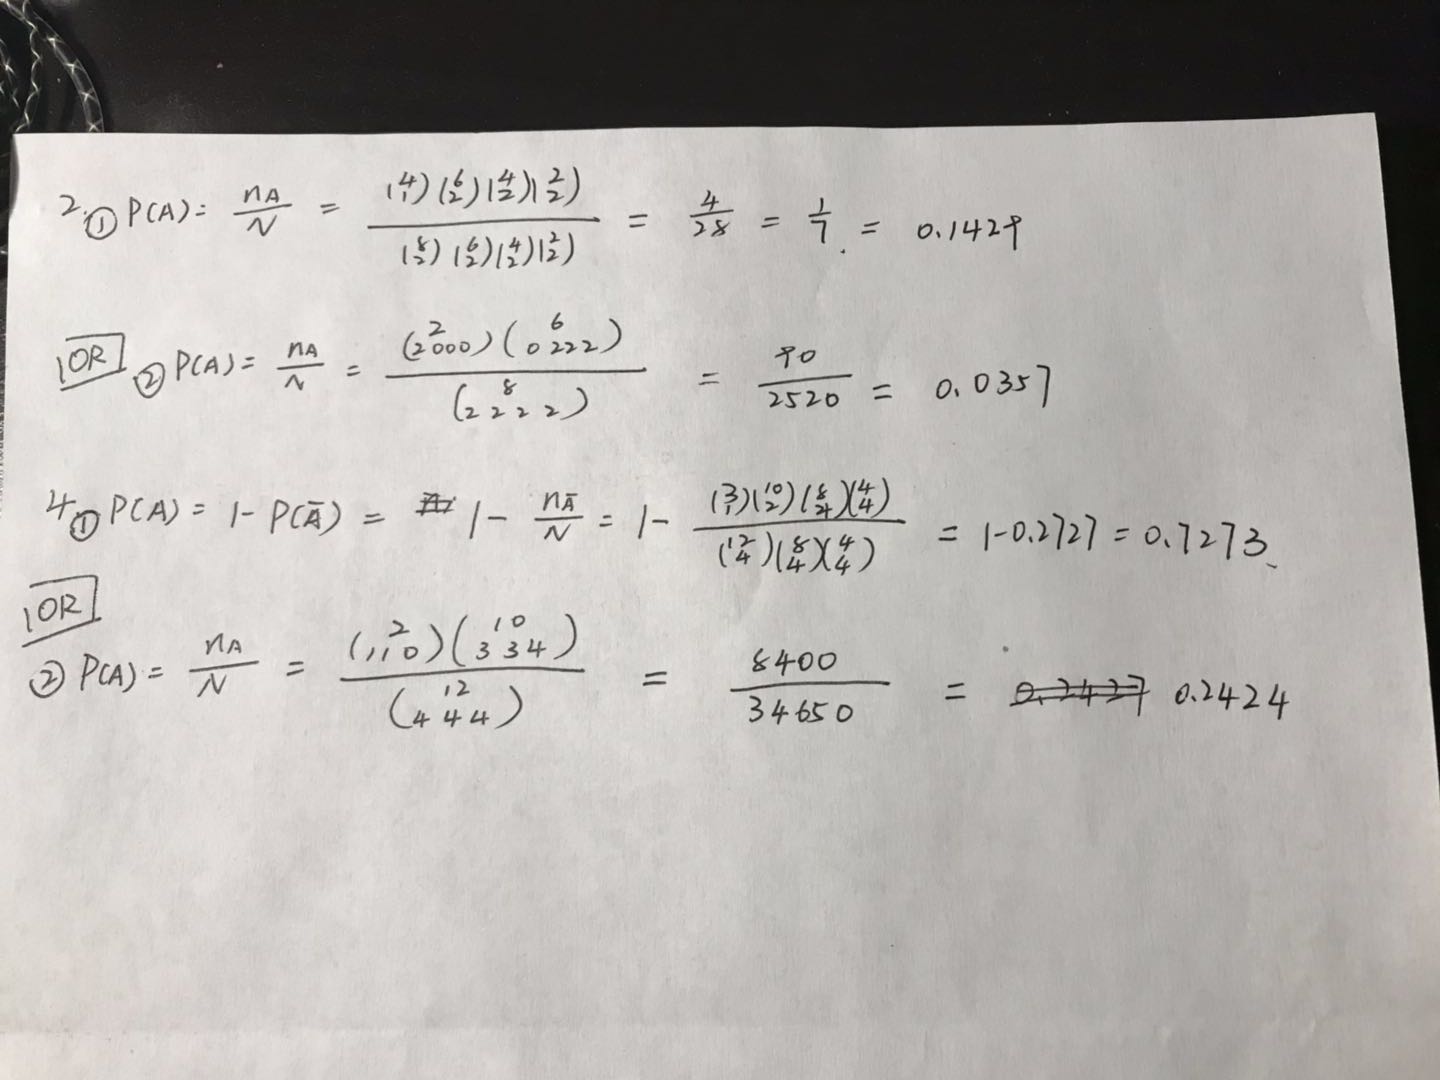 2. ① P(A) = nA/N = (4 1)(6 2)(4 2)(2 2) / (8 2)(6 2)(4 2)(2 2) = 4/28 = 1/7 = 0.1429
OR ② P(A) = nA/N = (2 / 2 0 0 0)(6 / 0 2 2 2) / (8 / 2 2 2 2) = 90/2520 = 0.0357
4. ① P(A) = 1 - P(Ā) = 1 - nĀ/N = 1 - (3 1)(10 2)(8 4)(4 4) / (12 4)(8 4)(4 4) = 1 - 0.2727 = 0.7273
OR
② P(A) = nA/N = (2 / 1, 1, 0)(10 / 3 3 4) / (12 / 4 4 4) = 8400/34650 = 0.2424